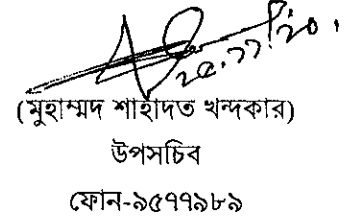 ২৫.১১.২০
(মুহাম্মদ শাহাদত খন্দকার)
উপসচিব
ফোন-৯৫৭৭৯৮৯